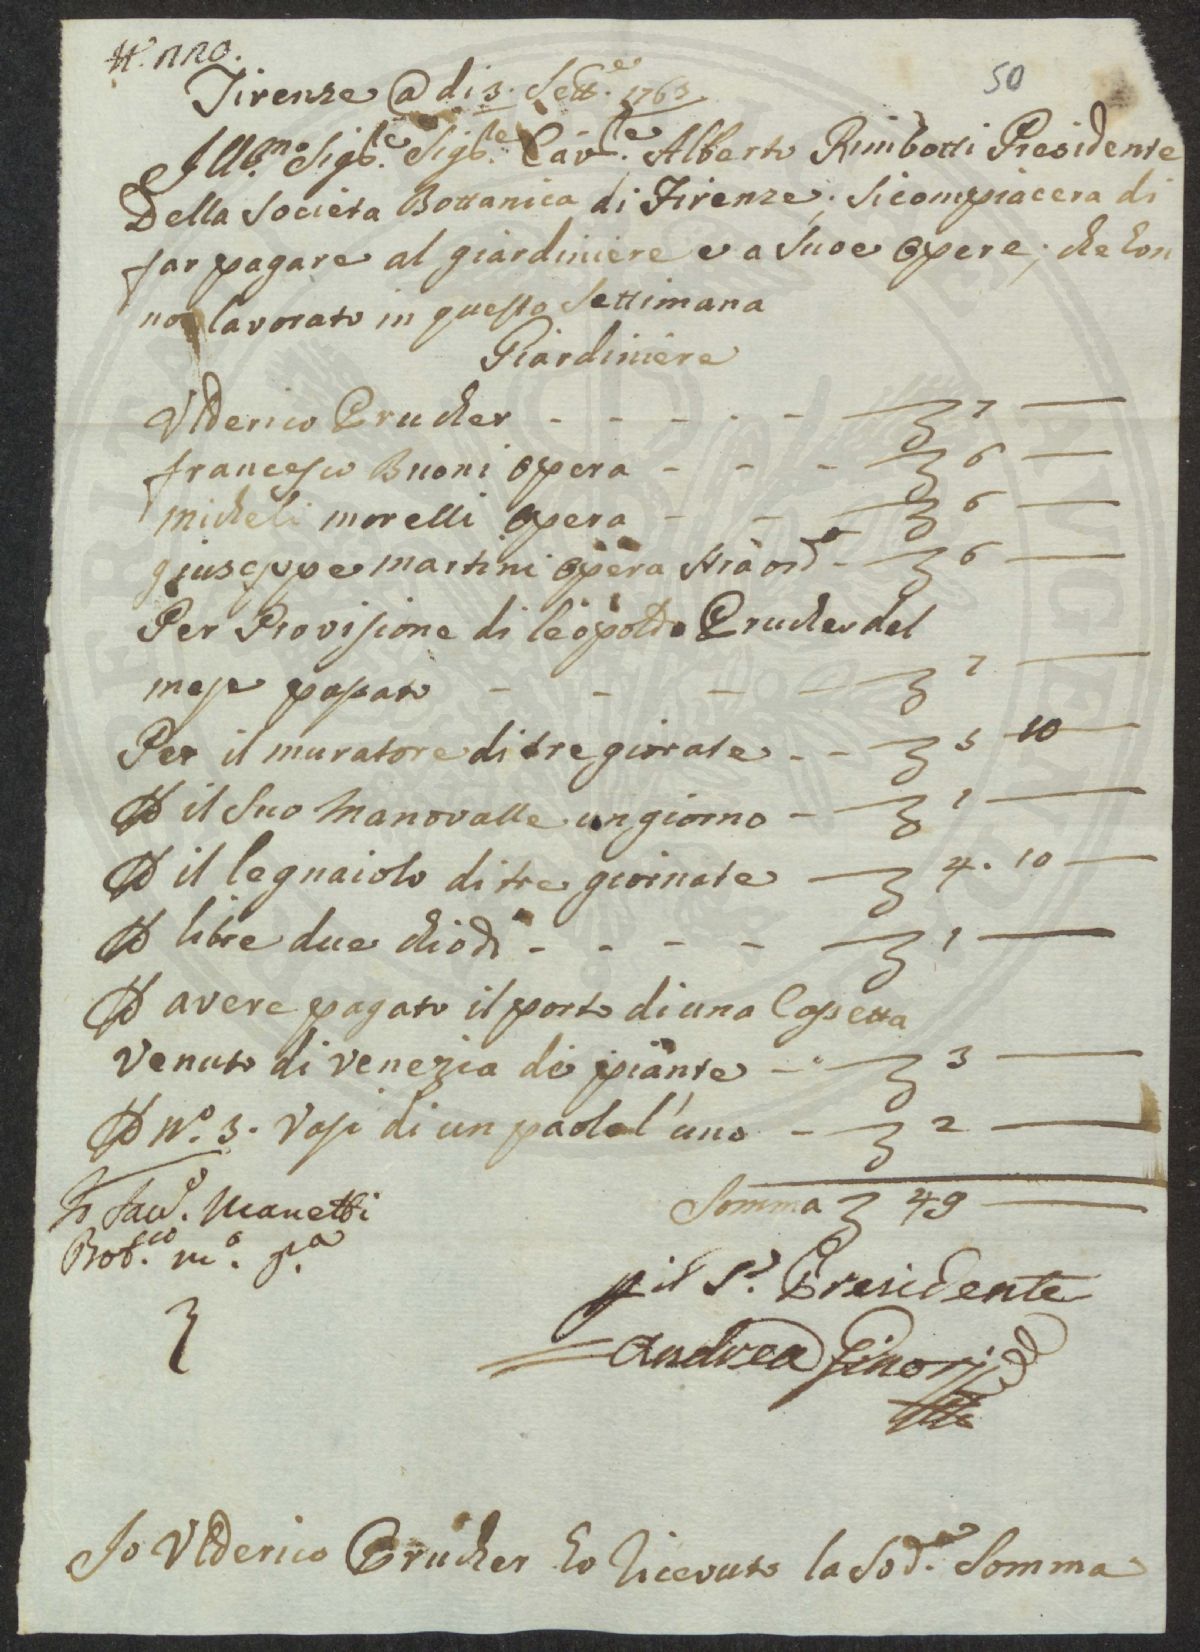 50
Firenze @ di 3. Sett.e 1763
Ill.mo Sig.le Sig.le Cav.le Alberto Rimbotti Presidente
Della Societa Bottanica di Firenze, Si compiacera di
far pagare al giardiniere e a Suoe Opere, che hon
no lavorato in questo Settimana
Giardiniere
Ulderico Prucher - - - - - 7 —
francesco Buoni opera - - - 6 —
micheli morelli opera - - 6 —
giuseppe martini opera straord.o - 6 —
Per Provisione di leopoldo Prucher del
mese passato - - - - 7 —
Per il muratore di tre giornate - - 5 10
P il Suo Manovalle un giorno - 1 —
P il legnaiolo di tre giornate 4. 10 —
P libre due chiodi - - - - 1 —
P avere pagato il porto di una Cassetta
Venuto di venezia de piante - - 3 —
P N.o 3. Vasi di un paolo l'uno - 2 —
Somma 49 —
Io Sav.o Manetti
Bot.co m.o p.a
p il S.r Presidente
Andrea Ginori
Io Ulderico Prucher ho Ricevuto la Sod.a Somma